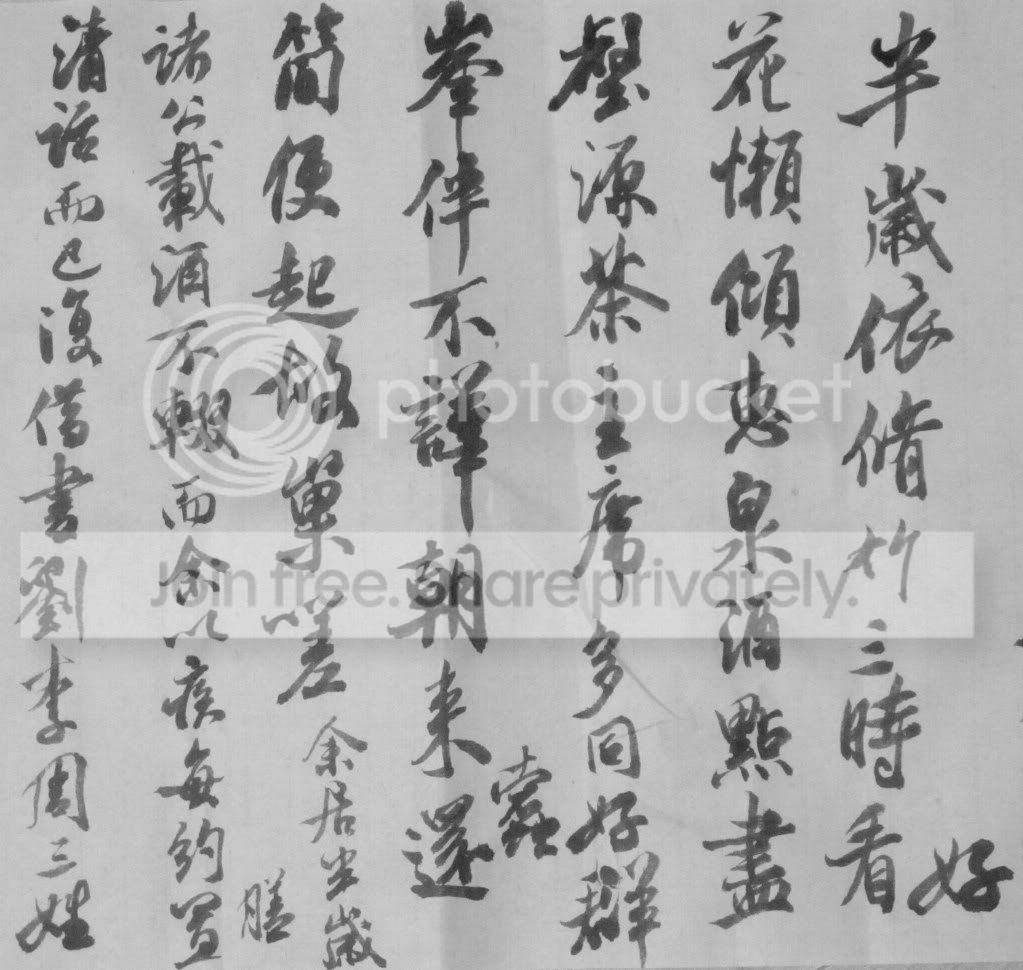 半歲依脩竹三時看好
花懶傾惠泉酒點盡
壑源茶主席多同好群
峯伴不譁朝来還蠹
簡便起故巢嗟余居半歲
諸公載酒不輟而余以疾每約置膳
清話而已復借書劉李周三姓
photobucket
Join free. Share privately.